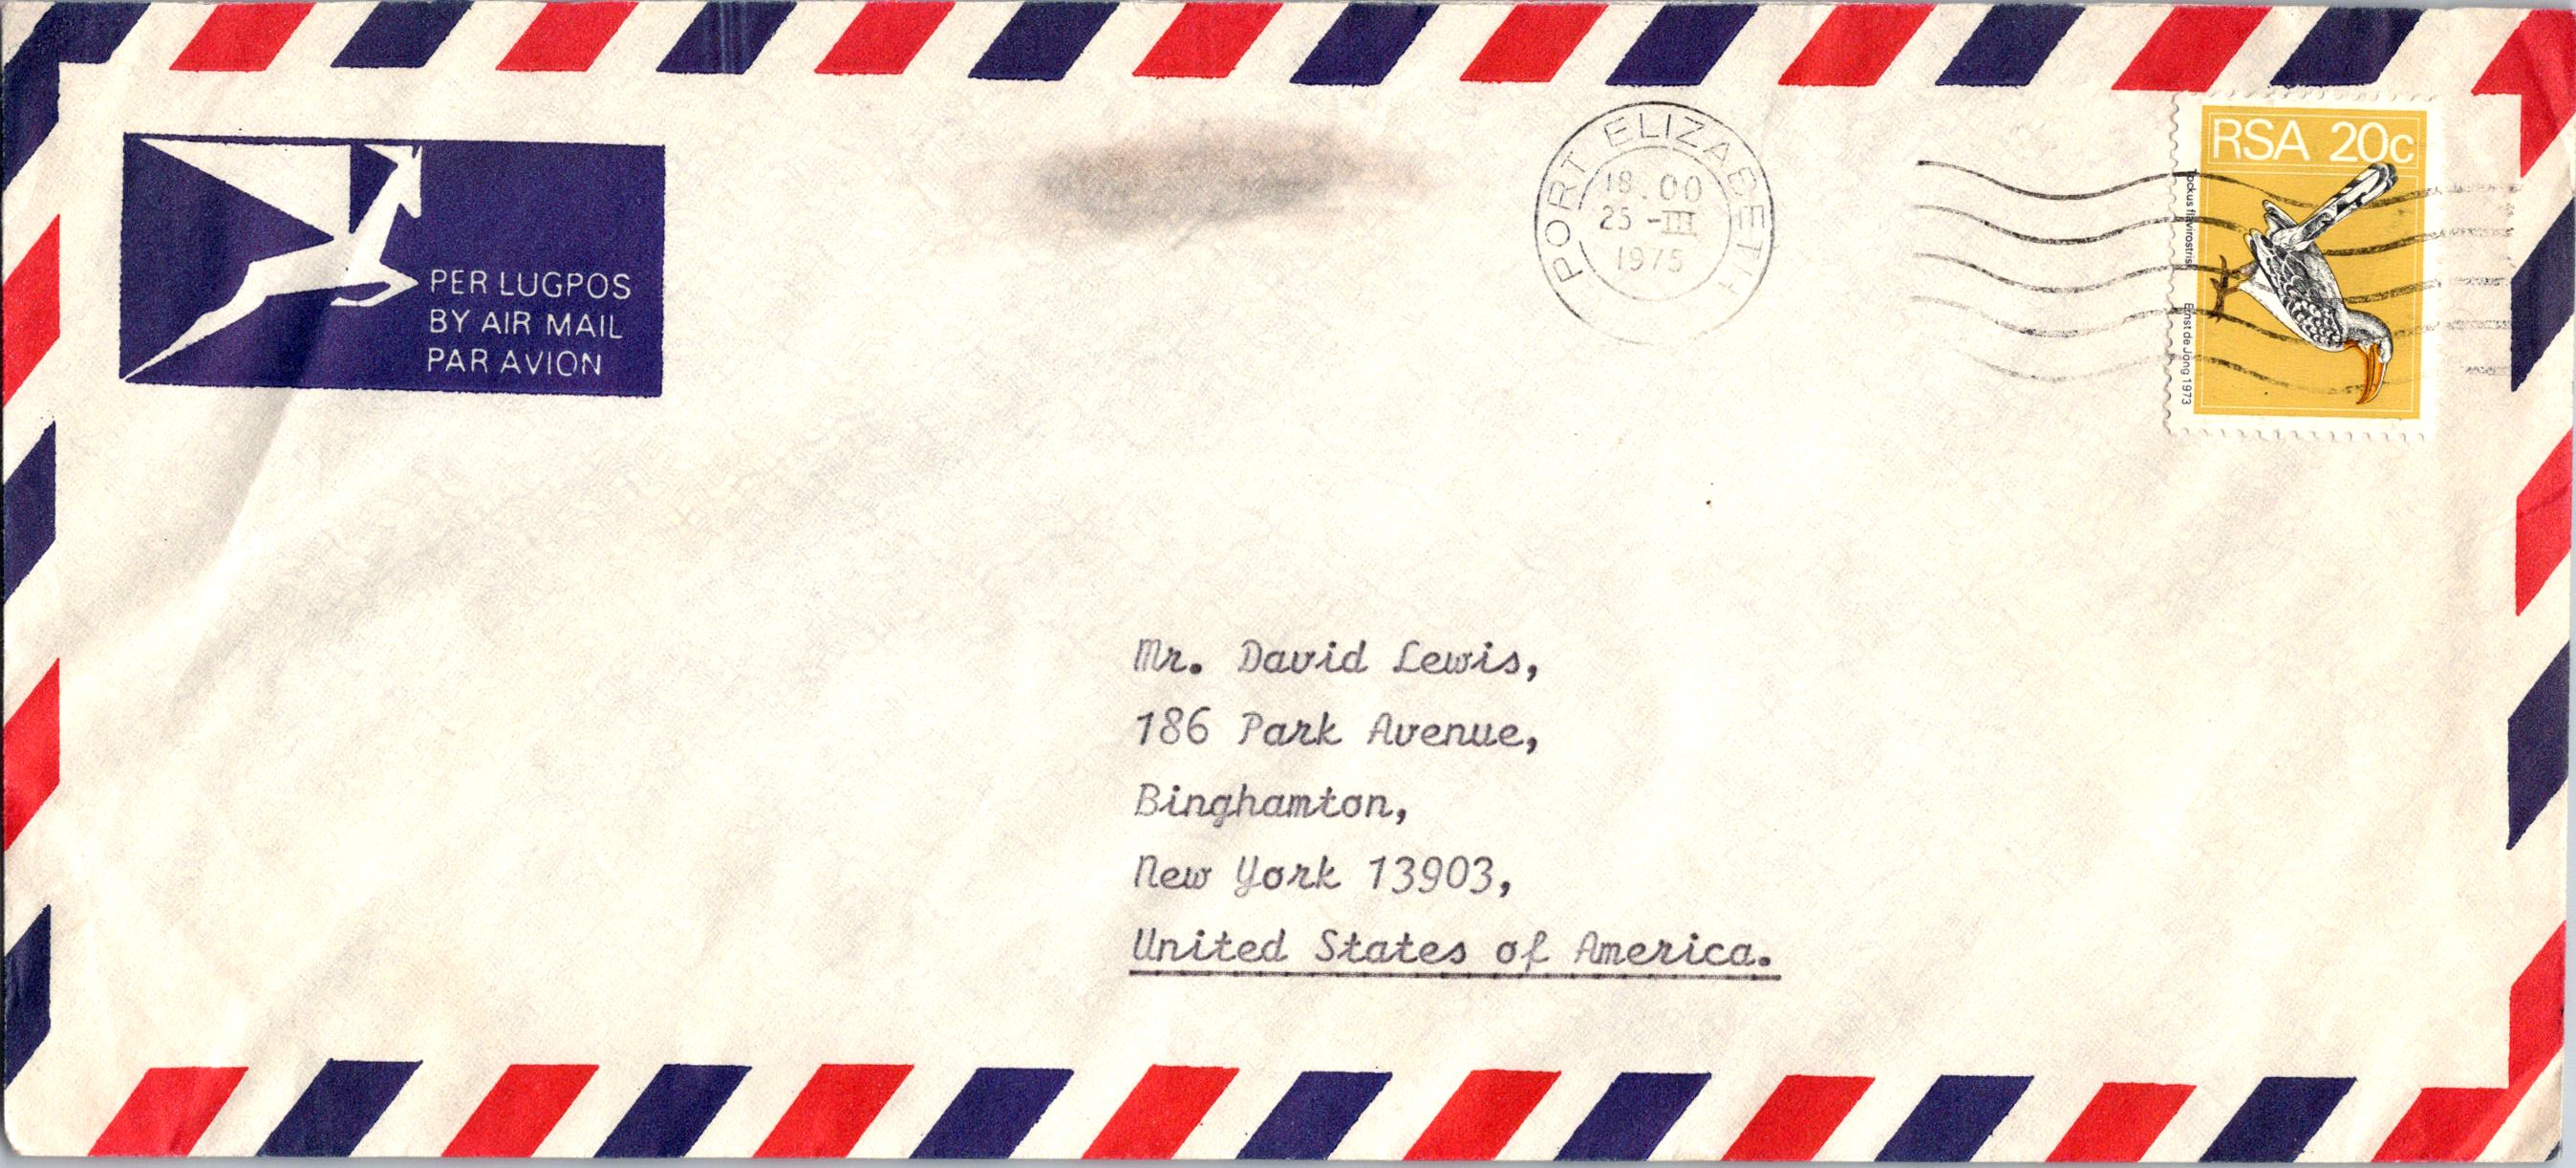 PER LUGPOS
BY AIR MAIL
PAR AVION
PORT ELIZABETH
18.00
25-III
1975
RSA 20c
Tockus flavirostris
Ernst de Jong 1973
Mr. David Lewis,
186 Park Avenue,
Binghamton,
New York 13903,
United States of America.